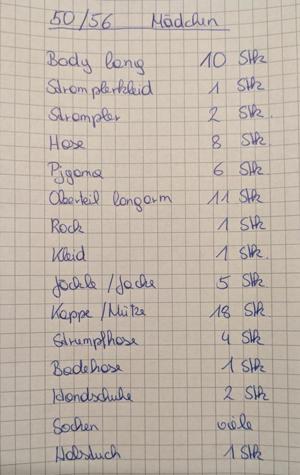 50/56 Mädchen
Body lang 10 Stk
Stramplerkleid 1 Stk
Strampler 2 Stk.
Hose 8 Stk
Pijama 6 Stk
Oberteil langarm 11 Stk
Rock 1 Stk
Kleid 1 Stk.
Jäckle/Jacke 5 Stk
Kappe/Mütze 18 Stk
Strumpfhose 4 Stk
Badehose 1 Stk
Handschuhe 2 Stk
Socken viele
Halstuch 1 Stk